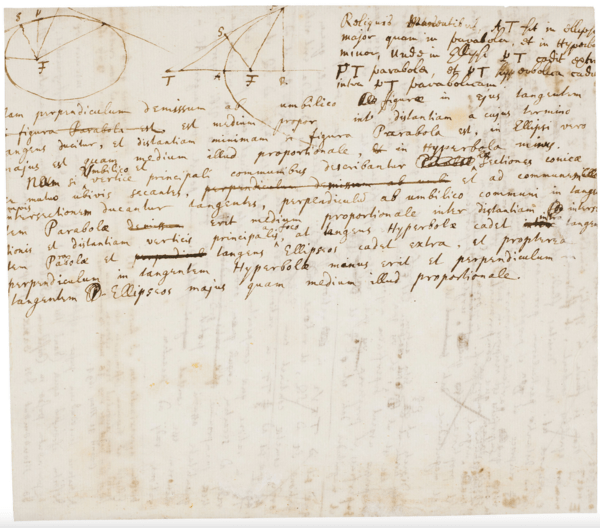 S P
F
S
T A F R
Reliquis manentibus, AT fit in Ellipsi
major quam in parabola, et in Hyperb
minor, Unde in Ellipsi PT cadit extra
PT parabolæ, et PT Hyperbolæ cadit
intra PT parabolicam.
Nam perpendiculum demissum ab umbilico figuræ in ejus tangentem
si figura Parabola est est medium propor int distantiam a cujus termino
tangens ducitur, et distantiam minimam si figura Parabola est, in Ellipsi vero
majus est quam medium illud proportionale, et in Hyperbola minus.
Nam si Umbilico et vertice principali communibus describantur Sectiones conicæ
se mutuo ubivis secantes, perpendiculum demissum ab et ad communem
intersectionem ducantur tangentes, perpendiculum ab umbilico communi in tangen
tem Parabolæ erit medium proportionale inter distantiam intersec
tionis et distantiam verticis principalis at tangens Hyperbolæ cadet tangen
tem Parabolæ et tangens Ellipseos cadet extra, et propterea
perpendiculum in tangentem Hyperbolæ minus erit et perpendiculum in
tangentem Ellipseos majus quam medium illud proportionale.